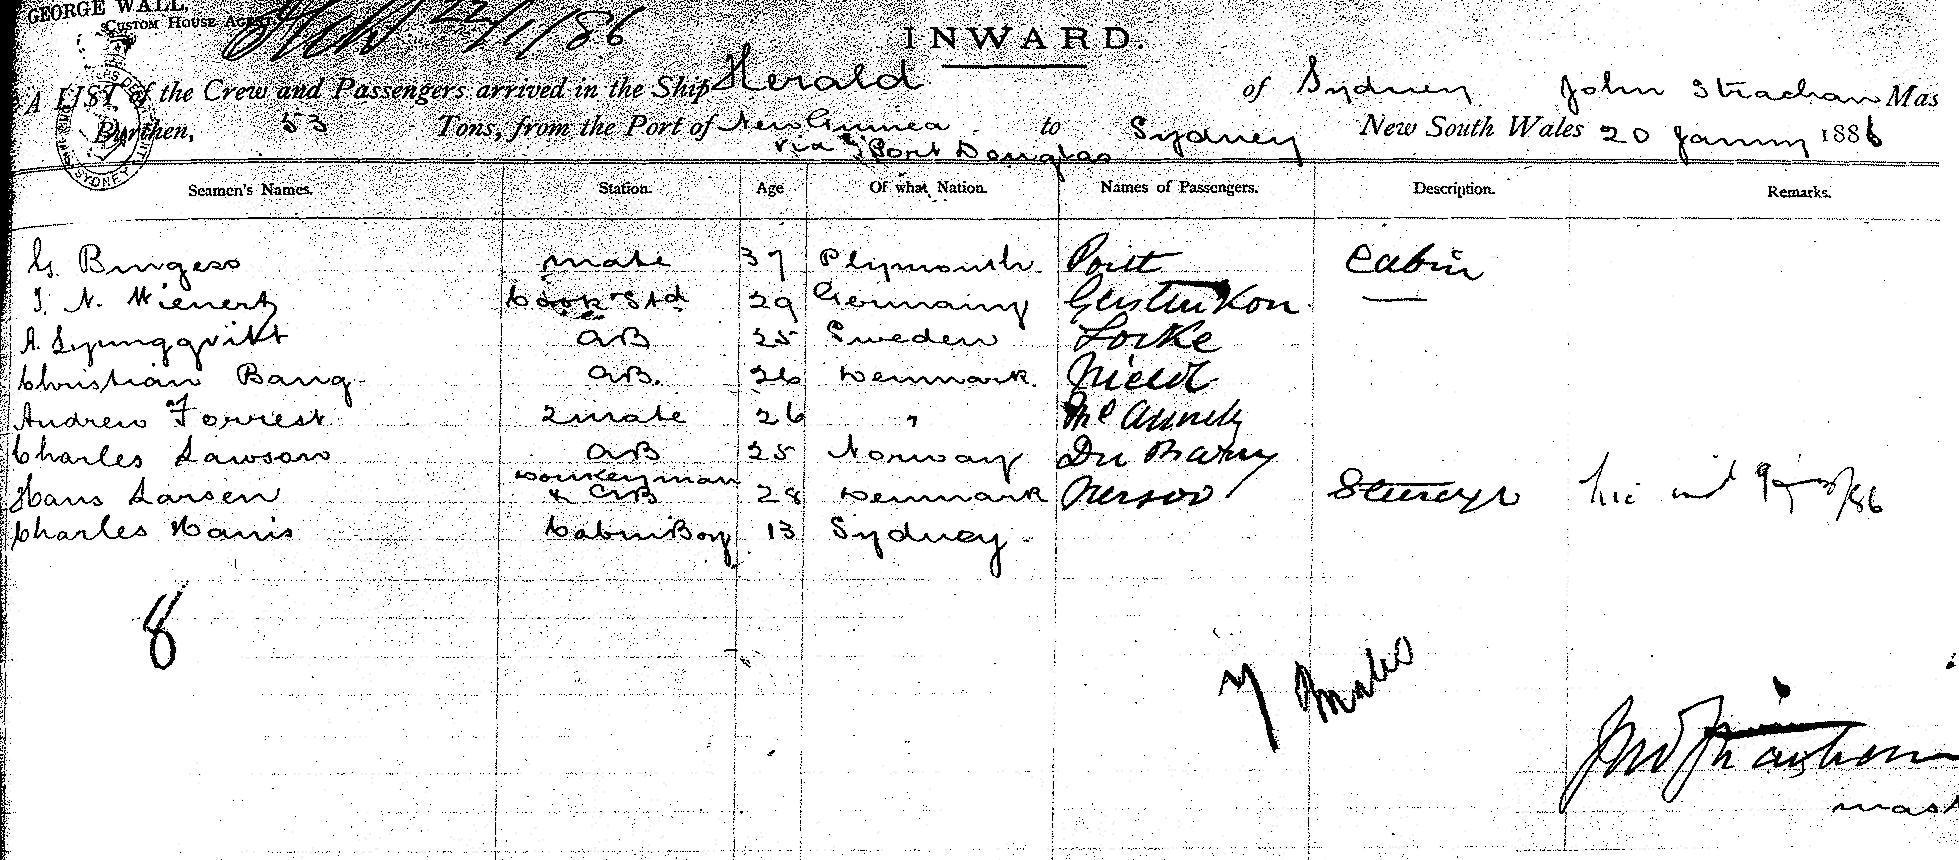 GEORGE WALL,
CUSTOM HOUSE AGENT
22/1/86
INWARD.
A LIST of the Crew and Passengers arrived in the Ship Herald of Sydney John Strachan Mas
Burthen, 53 Tons, from the Port of New Guinea to Sydney New South Wales 20 January 1886
via Port Douglas
Seamen's Names. Station. Age Of what Nation. Names of Passengers. Description. Remarks.
G. Burgess mate 37 Plymouth Pott Cabin
J. N. Wienert Cook Std 29 Germany
A. Lyungqvist AB 25 Sweden Locke
Christian Bang AB. 26 Denmark Nield
Andrew Forrest 2 mate 26 "
Charles Lawson AB 25 Norway Du Barry
Hans Larsen Donkeyman & AB 28 Denmark /86
Charles Harris Cabin Boy 13 Sydney
8
7 Males
Jno Strachan
mast
SYDNEY